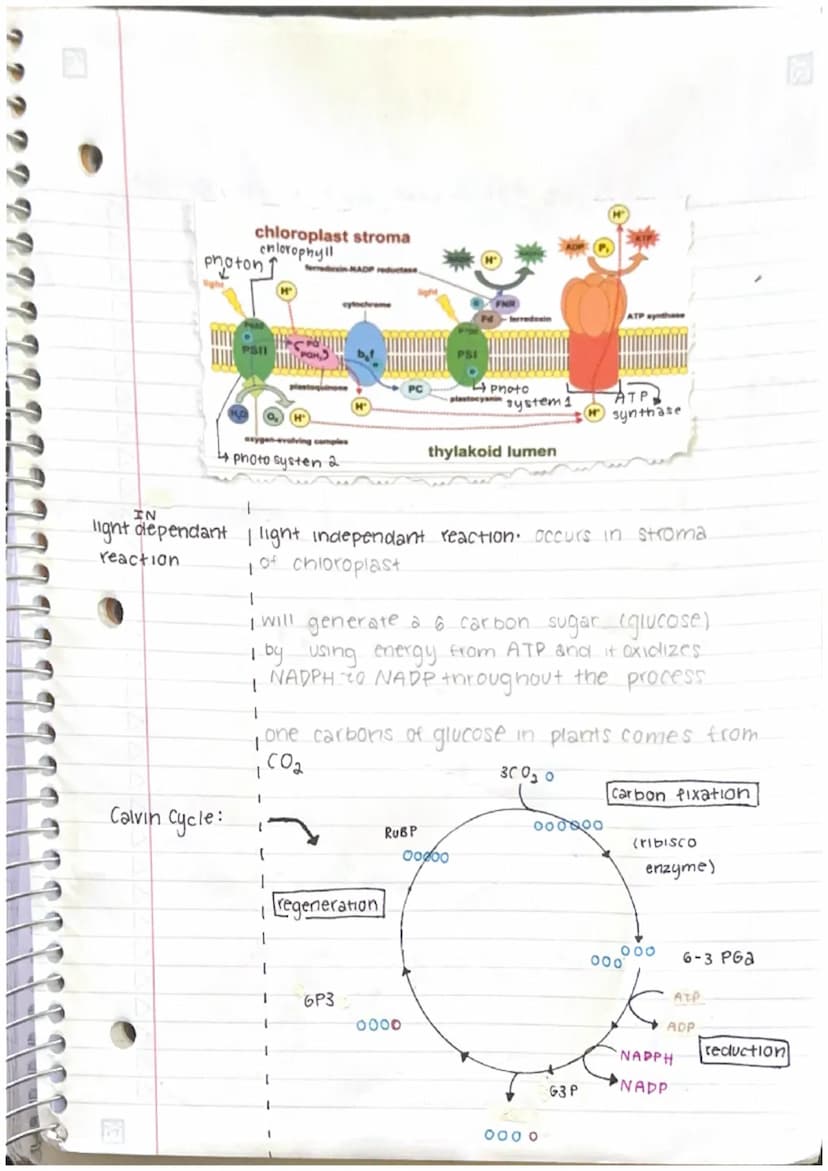 chloroplast stroma
chlorophyll
photon
ferredoxin-NADP reductase
light
H⁺
H⁺
ADP
Pᵢ
ATP
H⁺
cytochrome
light
FNR
Fd
ferredoxin
ATP synthase
PSII
PQ
PQH₂
b₆f
PSI
plastoquinone
PC
Photo
system 1
plastocyanin
ATP
synthase
H₂O
O₂
H⁺
H⁺
H⁺
oxygen-evolving complex
photo systen 2
thylakoid lumen
IN
light dependant
reaction
light independant reaction. occurs in stroma
of chloroplast
will generate a 6 carbon sugar (glucose)
by using energy from ATP and it oxidizes
NADPH to NADP throughout the process
one carbons of glucose in plants comes from
CO₂
Calvin Cycle:
3CO₂
carbon fixation
RuBP
(ribisco
enzyme)
regeneration
6-3 PGa
GP3
ATP
ADP
reduction
NADPH
NADP
G3P